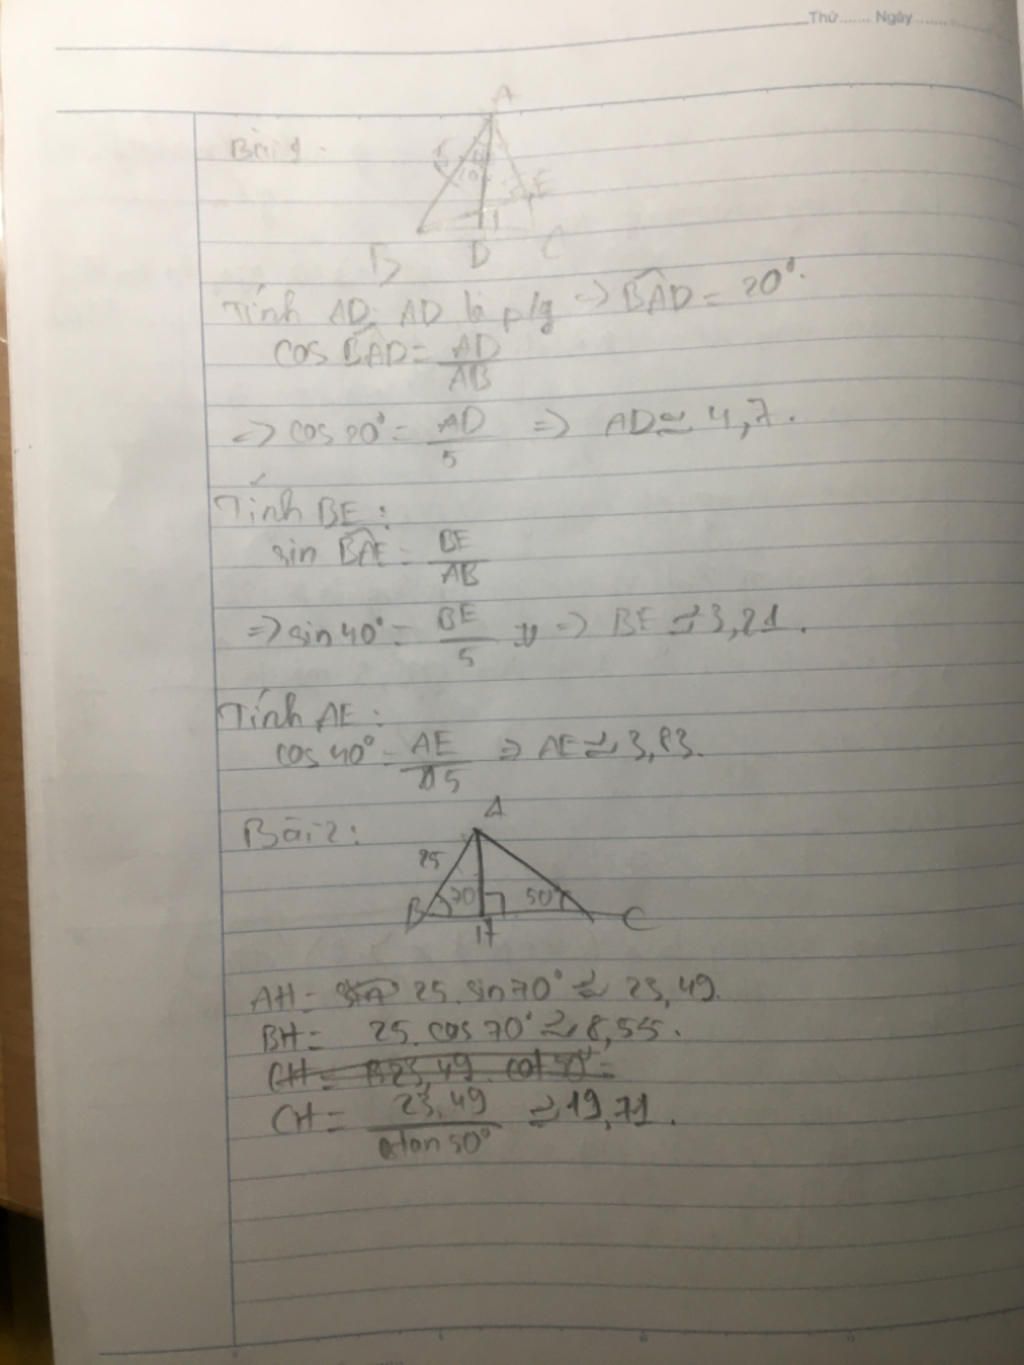 Thứ....... Ngày.......
Bài 1:
A
E
B D C
Tính AD: AD là p/g => BAD = 20°.
cos BAD = AD/AB
=> cos 20° = AD/5 => AD ≈ 4,7.
Tính BE:
sin BAE = BE/AB
=> sin 40° = BE/5 => BE ≈ 3,21.
Tính AE:
cos 40° = AE/5 => AE ≈ 3,83.
Bài 2:
A
25
B 70° 50° C
H
AH = 25. sin 70° ≈ 23,49.
BH = 25. cos 70° ≈ 8,55.
CH = 23,49. cot 50° =
CH = 23,49/tan 50° ≈ 19,71.